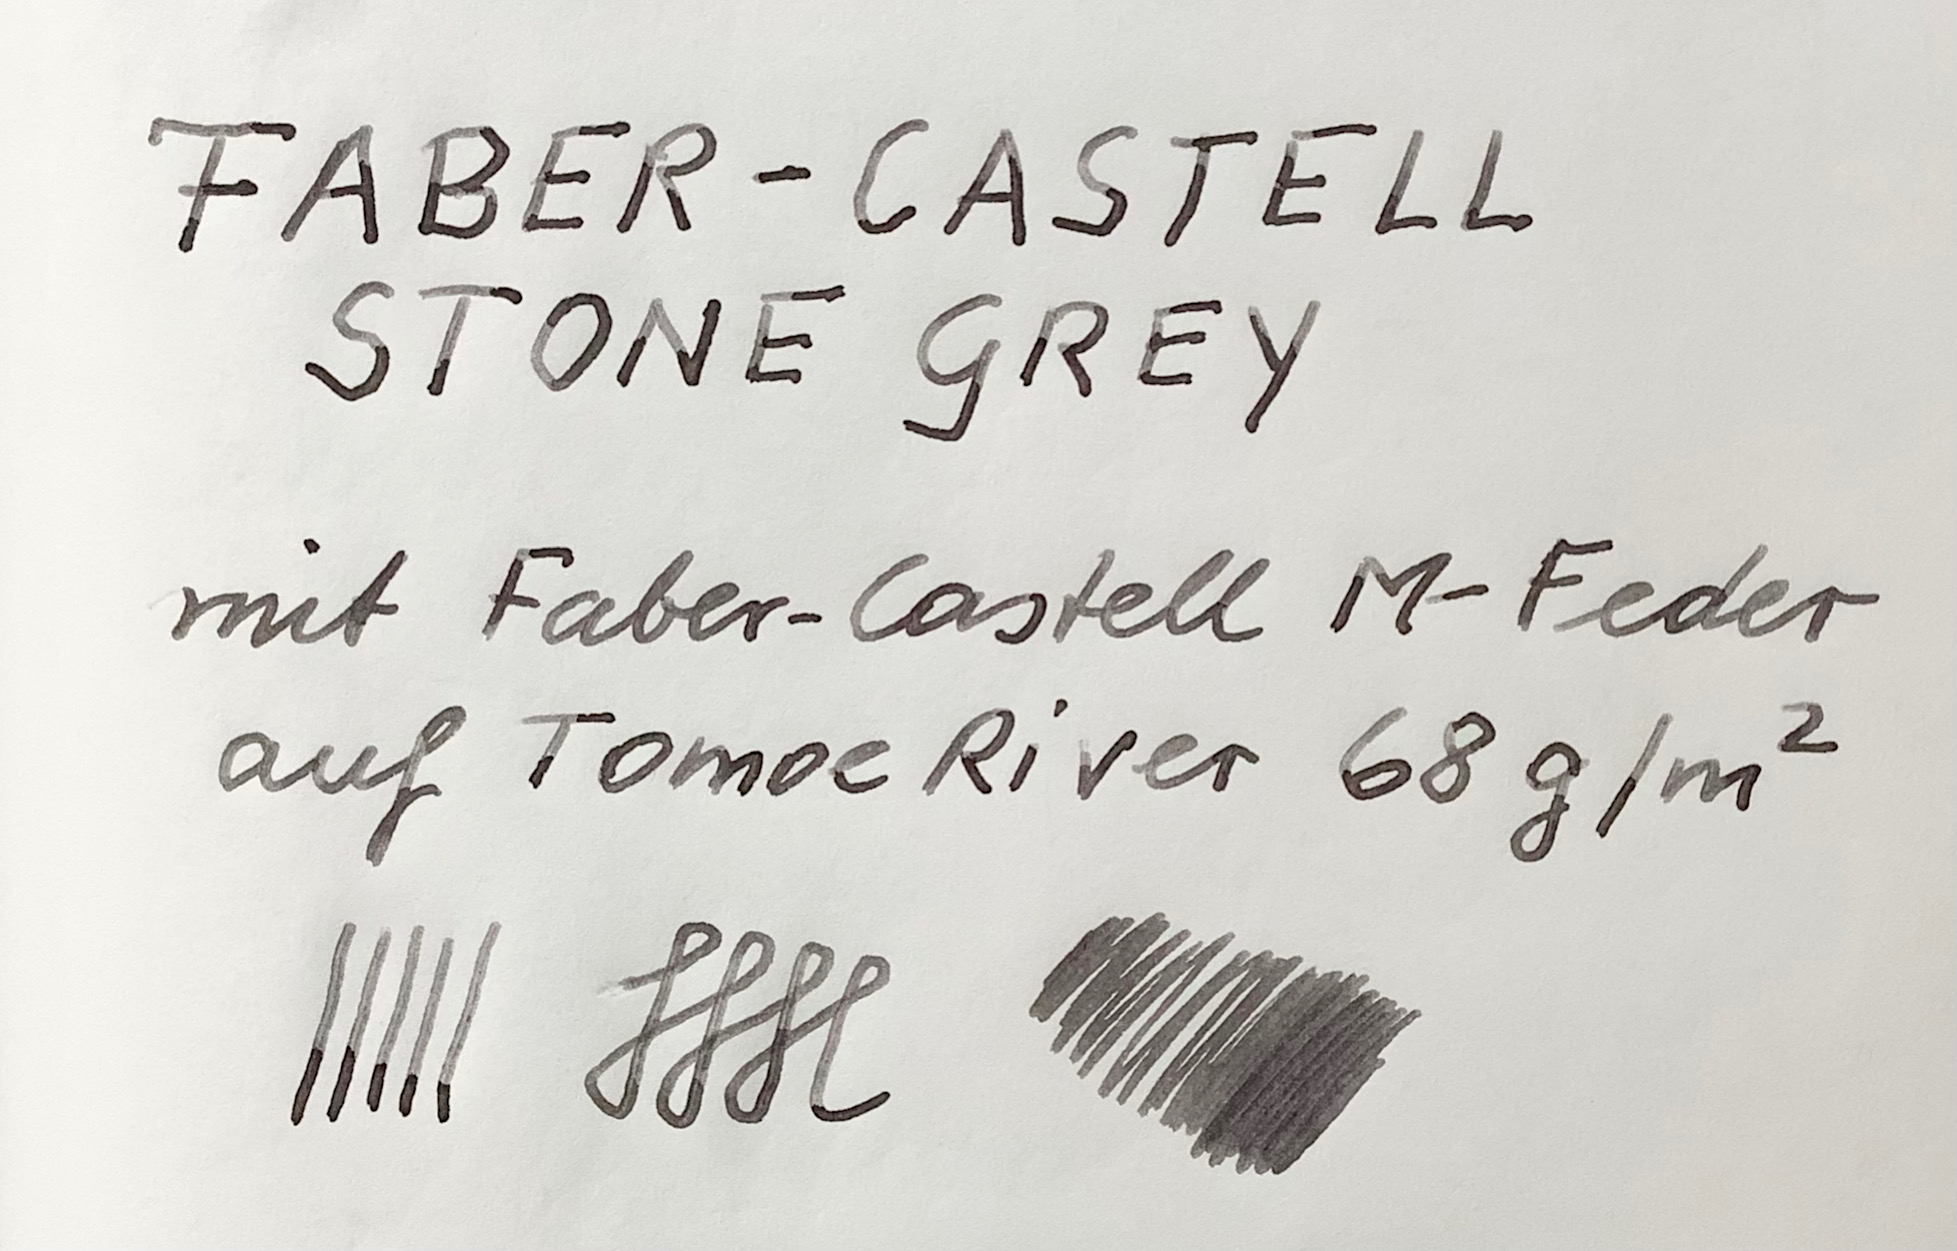 FABER-CASTELL
STONE GREY
mit Faber-Castell M-Feder
auf Tomoe River 68 g/m²